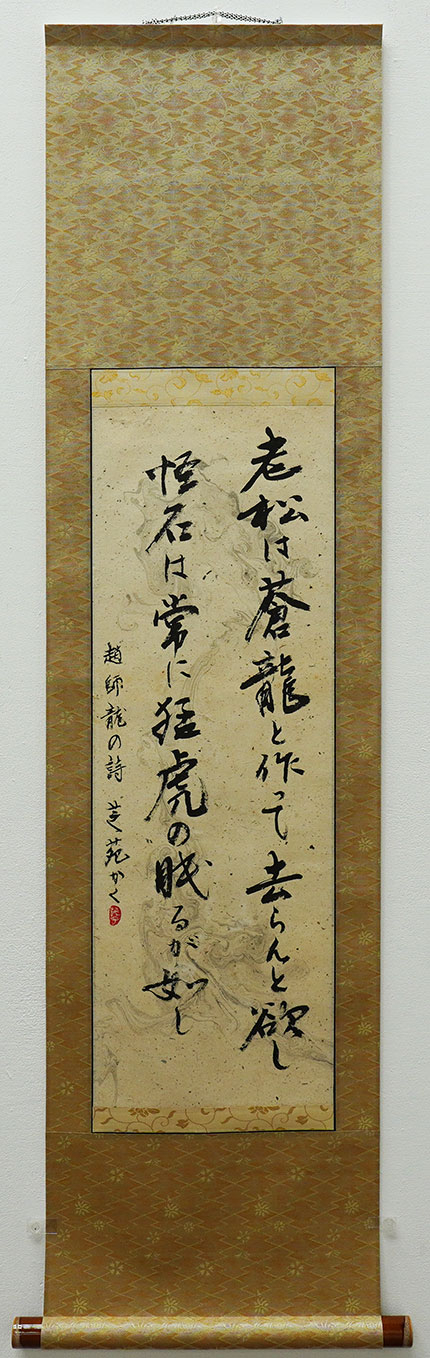 老松は蒼龍と作って去らんと欲し
怪石は常に猛虎の眠るが如し
趙師龍の詩 芝苑かく